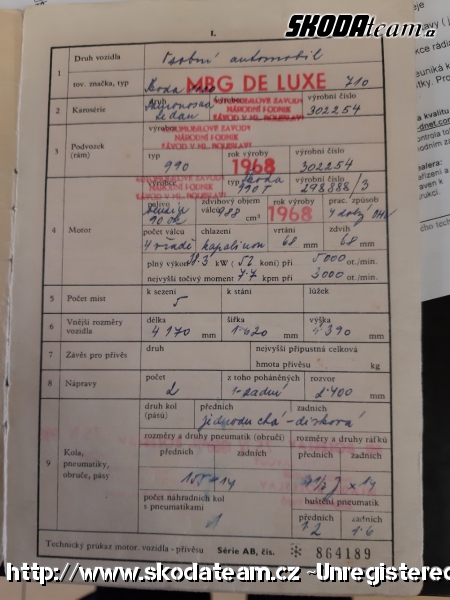 ŠKODAteam.cz
I.
1
Druh vozidla
Osobní automobil
tov. značka, typ
Škoda 1000 MBG DE LUXE 710
2
Karosérie
druh výrobce výrobní číslo
Samonosná
sedan
AUTOMOBILOVÉ ZÁVODY
NÁRODNÍ PODNIK
ZÁVOD V ML. BOLESLAVI
302254
3
Podvozek
(rám)
výrobce
AUTOMOBILOVÉ ZÁVODY
NÁRODNÍ PODNIK
ZÁVOD V ML. BOLESLAVI
typ rok výroby výrobní číslo
990 1968 302254
4
Motor
výrobce typ výrobní číslo
AUTOMOBILOVÉ ZÁVODY
NÁRODNÍ PODNIK
ZÁVOD V ML. BOLESLAVI
Škoda
990T
298888/3
palivo zdvihový objem rok výroby prac. způsob
benzin
90 okt
válců 988 cm³
1968 4 dobý OHV
počet válců chlazení vrtání zdvih
4 v řadě kapalinou 68 mm 68 mm
plný výkon 38.3 kW ( 52 koní) při 5000 ot./min.
nejvyšší točivý moment 7.7 kpm při 3000 ot./min.
5
Počet míst
k sezení k stání lůžek
5
6
Vnější rozměry
vozidla
délka šířka výška
4170 mm 1620 mm 1390 mm
7
Závěs pro přívěs
druh nejvyšší přípustná celková
hmota přívěsu kg
8
Nápravy
počet z toho poháněných rozvor
2 1-zadní 2400 mm
9
Kola,
pneumatiky,
obruče, pásy
druh kol
(pásů)
předních zadních
jednoduchá - disková
rozměry a druhy pneumatik (obručí) rozměry a druhy ráfků
předních zadních předních zadních
155-14 4 1/2 J x 14
počet náhradních kol
s pneumatikami
huštění pneumatik
1
předních zadních
1.2 1.6
Technický průkaz motor. vozidla - přívěsu Série AB, čís. 864189
http://www.skodateam.cz ~Unregistered